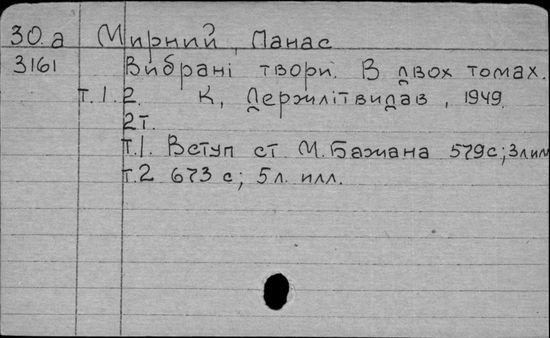 30.а Мирний, Панас
3161 Вибрані твори. В двох томах.
т.1.2. К, Держлітвидав, 1949.
2т.
т.1. Вступ ст М. Бажана 579с; 3л им
т.2 673 с; 5л. илл.